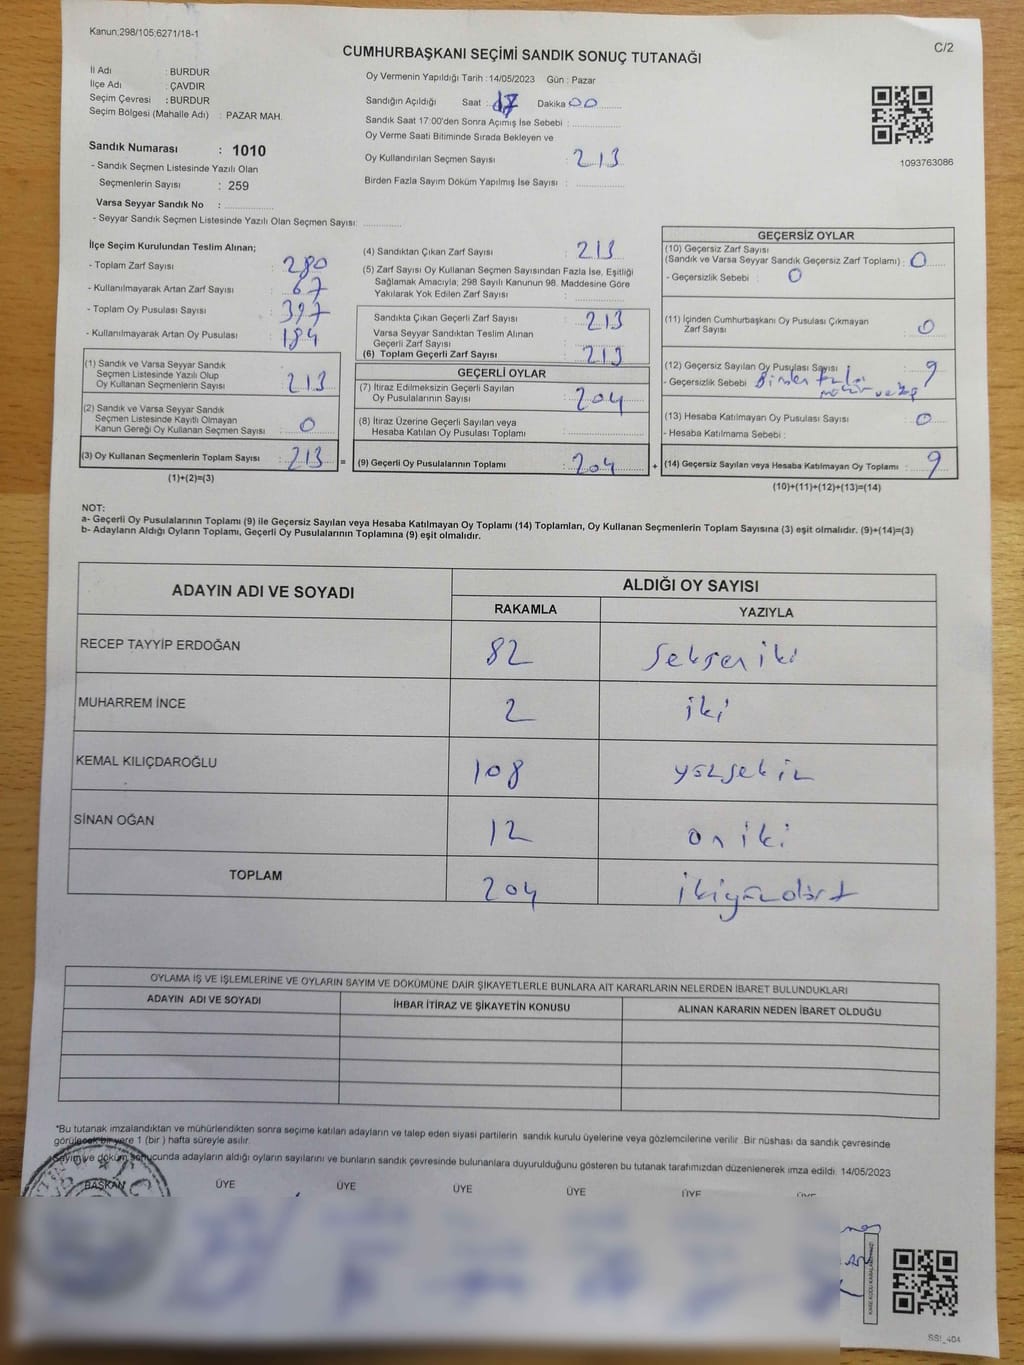 Kanun;298/105;6271/18-1
C/2
CUMHURBAŞKANI SEÇİMİ SANDIK SONUÇ TUTANAĞI
İl Adı : BURDUR
İlçe Adı : ÇAVDIR
Seçim Çevresi : BURDUR
Seçim Bölgesi (Mahalle Adı) : PAZAR MAH.
Sandık Numarası : 1010
- Sandık Seçmen Listesinde Yazılı Olan
Seçmenlerin Sayısı : 259
Varsa Seyyar Sandık No :
- Seyyar Sandık Seçmen Listesinde Yazılı Olan Seçmen Sayısı:
Oy Vermenin Yapıldığı Tarih : 14/05/2023 Gün : Pazar
Sandığın Açıldığı Saat : 17 Dakika 00
Sandık Saat 17:00'den Sonra Açılmış İse Sebebi :
Oy Verme Saati Bitiminde Sırada Bekleyen ve
Oy Kullandırılan Seçmen Sayısı : 213
Birden Fazla Sayım Döküm Yapılmış İse Sayısı :
1093763086
İlçe Seçim Kurulundan Teslim Alınan;
- Toplam Zarf Sayısı : 280
- Kullanılmayarak Artan Zarf Sayısı : 67
- Toplam Oy Pusulası Sayısı : 397
- Kullanılmayarak Artan Oy Pusulası : 184
(1) Sandık ve Varsa Seyyar Sandık
Seçmen Listesinde Yazılı Olup
Oy Kullanan Seçmenlerin Sayısı : 213
(2) Sandık ve Varsa Seyyar Sandık
Seçmen Listesinde Kayıtlı Olmayan
Kanun Gereği Oy Kullanan Seçmen Sayısı : 0
(3) Oy Kullanan Seçmenlerin Toplam Sayısı : 213 =
(1)+(2)=(3)
(4) Sandıktan Çıkan Zarf Sayısı : 213
(5) Zarf Sayısı Oy Kullanan Seçmen Sayısından Fazla İse, Eşitliği
Sağlamak Amacıyla; 298 Sayılı Kanunun 98. Maddesine Göre
Yakılarak Yok Edilen Zarf Sayısı :
Sandıkta Çıkan Geçerli Zarf Sayısı : 213
Varsa Seyyar Sandıktan Teslim Alınan
Geçerli Zarf Sayısı :
(6) Toplam Geçerli Zarf Sayısı : 213
GEÇERLİ OYLAR
(7) İtiraz Edilmeksizin Geçerli Sayılan
Oy Pusulalarının Sayısı : 204
(8) İtiraz Üzerine Geçerli Sayılan veya
Hesaba Katılan Oy Pusulası Toplamı :
(9) Geçerli Oy Pusulalarının Toplamı : 204 +
GEÇERSİZ OYLAR
(10) Geçersiz Zarf Sayısı
(Sandık ve Varsa Seyyar Sandık Geçersiz Zarf Toplamı) : 0
- Geçersizlik Sebebi : 0
(11) İçinden Cumhurbaşkanı Oy Pusulası Çıkmayan
Zarf Sayısı : 0
(12) Geçersiz Sayılan Oy Pusulası Sayısı : 9
- Geçersizlik Sebebi : Birden fazla
mühür
(13) Hesaba Katılmayan Oy Pusulası Sayısı : 0
- Hesaba Katılmama Sebebi :
(14) Geçersiz Sayılan veya Hesaba Katılmayan Oy Toplamı : 9
(10)+(11)+(12)+(13)=(14)
NOT:
a- Geçerli Oy Pusulalarının Toplamı (9) ile Geçersiz Sayılan veya Hesaba Katılmayan Oy Toplamı (14) Toplamları, Oy Kullanan Seçmenlerin Toplam Sayısına (3) eşit olmalıdır. (9)+(14)=(3)
b- Adayların Aldığı Oyların Toplamı, Geçerli Oy Pusulalarının Toplamına (9) eşit olmalıdır.
ADAYIN ADI VE SOYADI ALDIĞI OY SAYISI
RAKAMLA YAZIYLA
RECEP TAYYİP ERDOĞAN 82 Seksen iki
MUHARREM İNCE 2 iki
KEMAL KILIÇDAROĞLU 108 yüzsekiz
SİNAN OĞAN 12 on iki
TOPLAM 204 ikiyüzdört
OYLAMA İŞ VE İŞLEMLERİNE VE OYLARIN SAYIM VE DÖKÜMÜNE DAİR ŞİKAYETLERLE BUNLARA AİT KARARLARIN NELERDEN İBARET BULUNDUKLARI
ADAYIN ADI VE SOYADI İHBAR İTİRAZ VE ŞİKAYETİN KONUSU ALINAN KARARIN NEDEN İBARET OLDUĞU
*Bu tutanak imzalandıktan ve mühürlendikten sonra seçime katılan adayların ve talep eden siyasi partilerin sandık kurulu üyelerine veya gözlemcilerine verilir. Bir nüshası da sandık çevresinde
görülecek bir yere 1 (bir ) hafta süreyle asılır.
Sayım ve döküm sonucunda adayların aldığı oyların sayılarını ve bunların sandık çevresinde bulunanlara duyurulduğunu gösteren bu tutanak tarafımızdan düzenlenerek imza edildi. 14/05/2023
BAŞKAN ÜYE ÜYE ÜYE ÜYE ÜYE ÜYE
SSİ_404